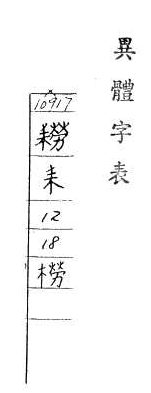 異體字表
10917
耮
耒
12
18
橯